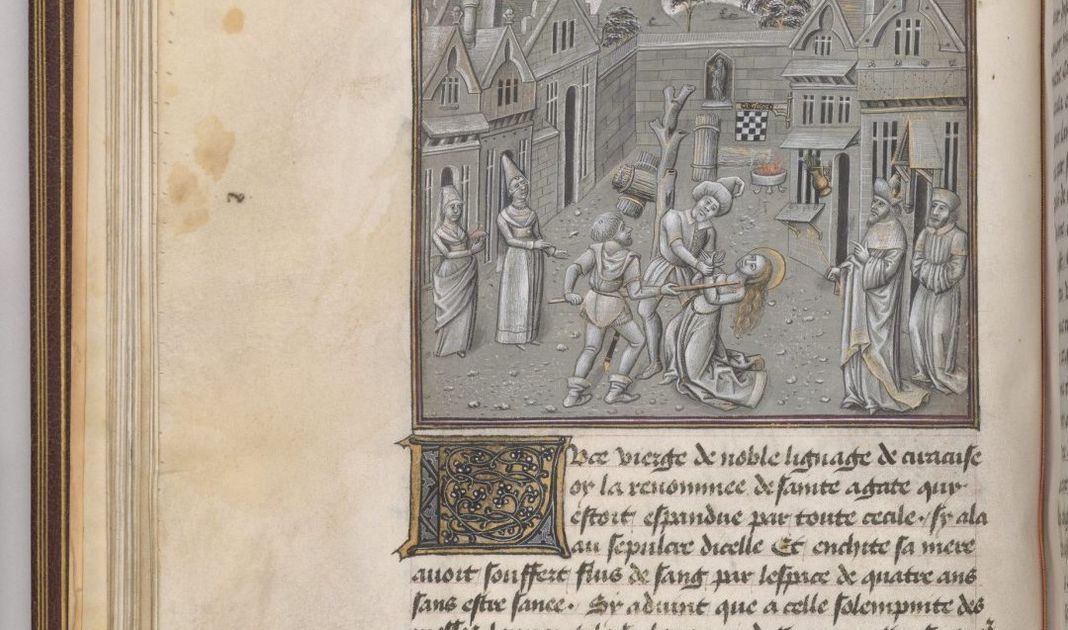 Uce vierge de noble lignage de ciracuse
oy la renommee de sainte agate qui
estoit espandue par toute cecile. sy ala
au sepulcre dicelle Et eutichite sa mere
auoit souffert fluis de sang par lespace de quatre ans
sans estre sanee. Sy aduint que a celle solempnite des